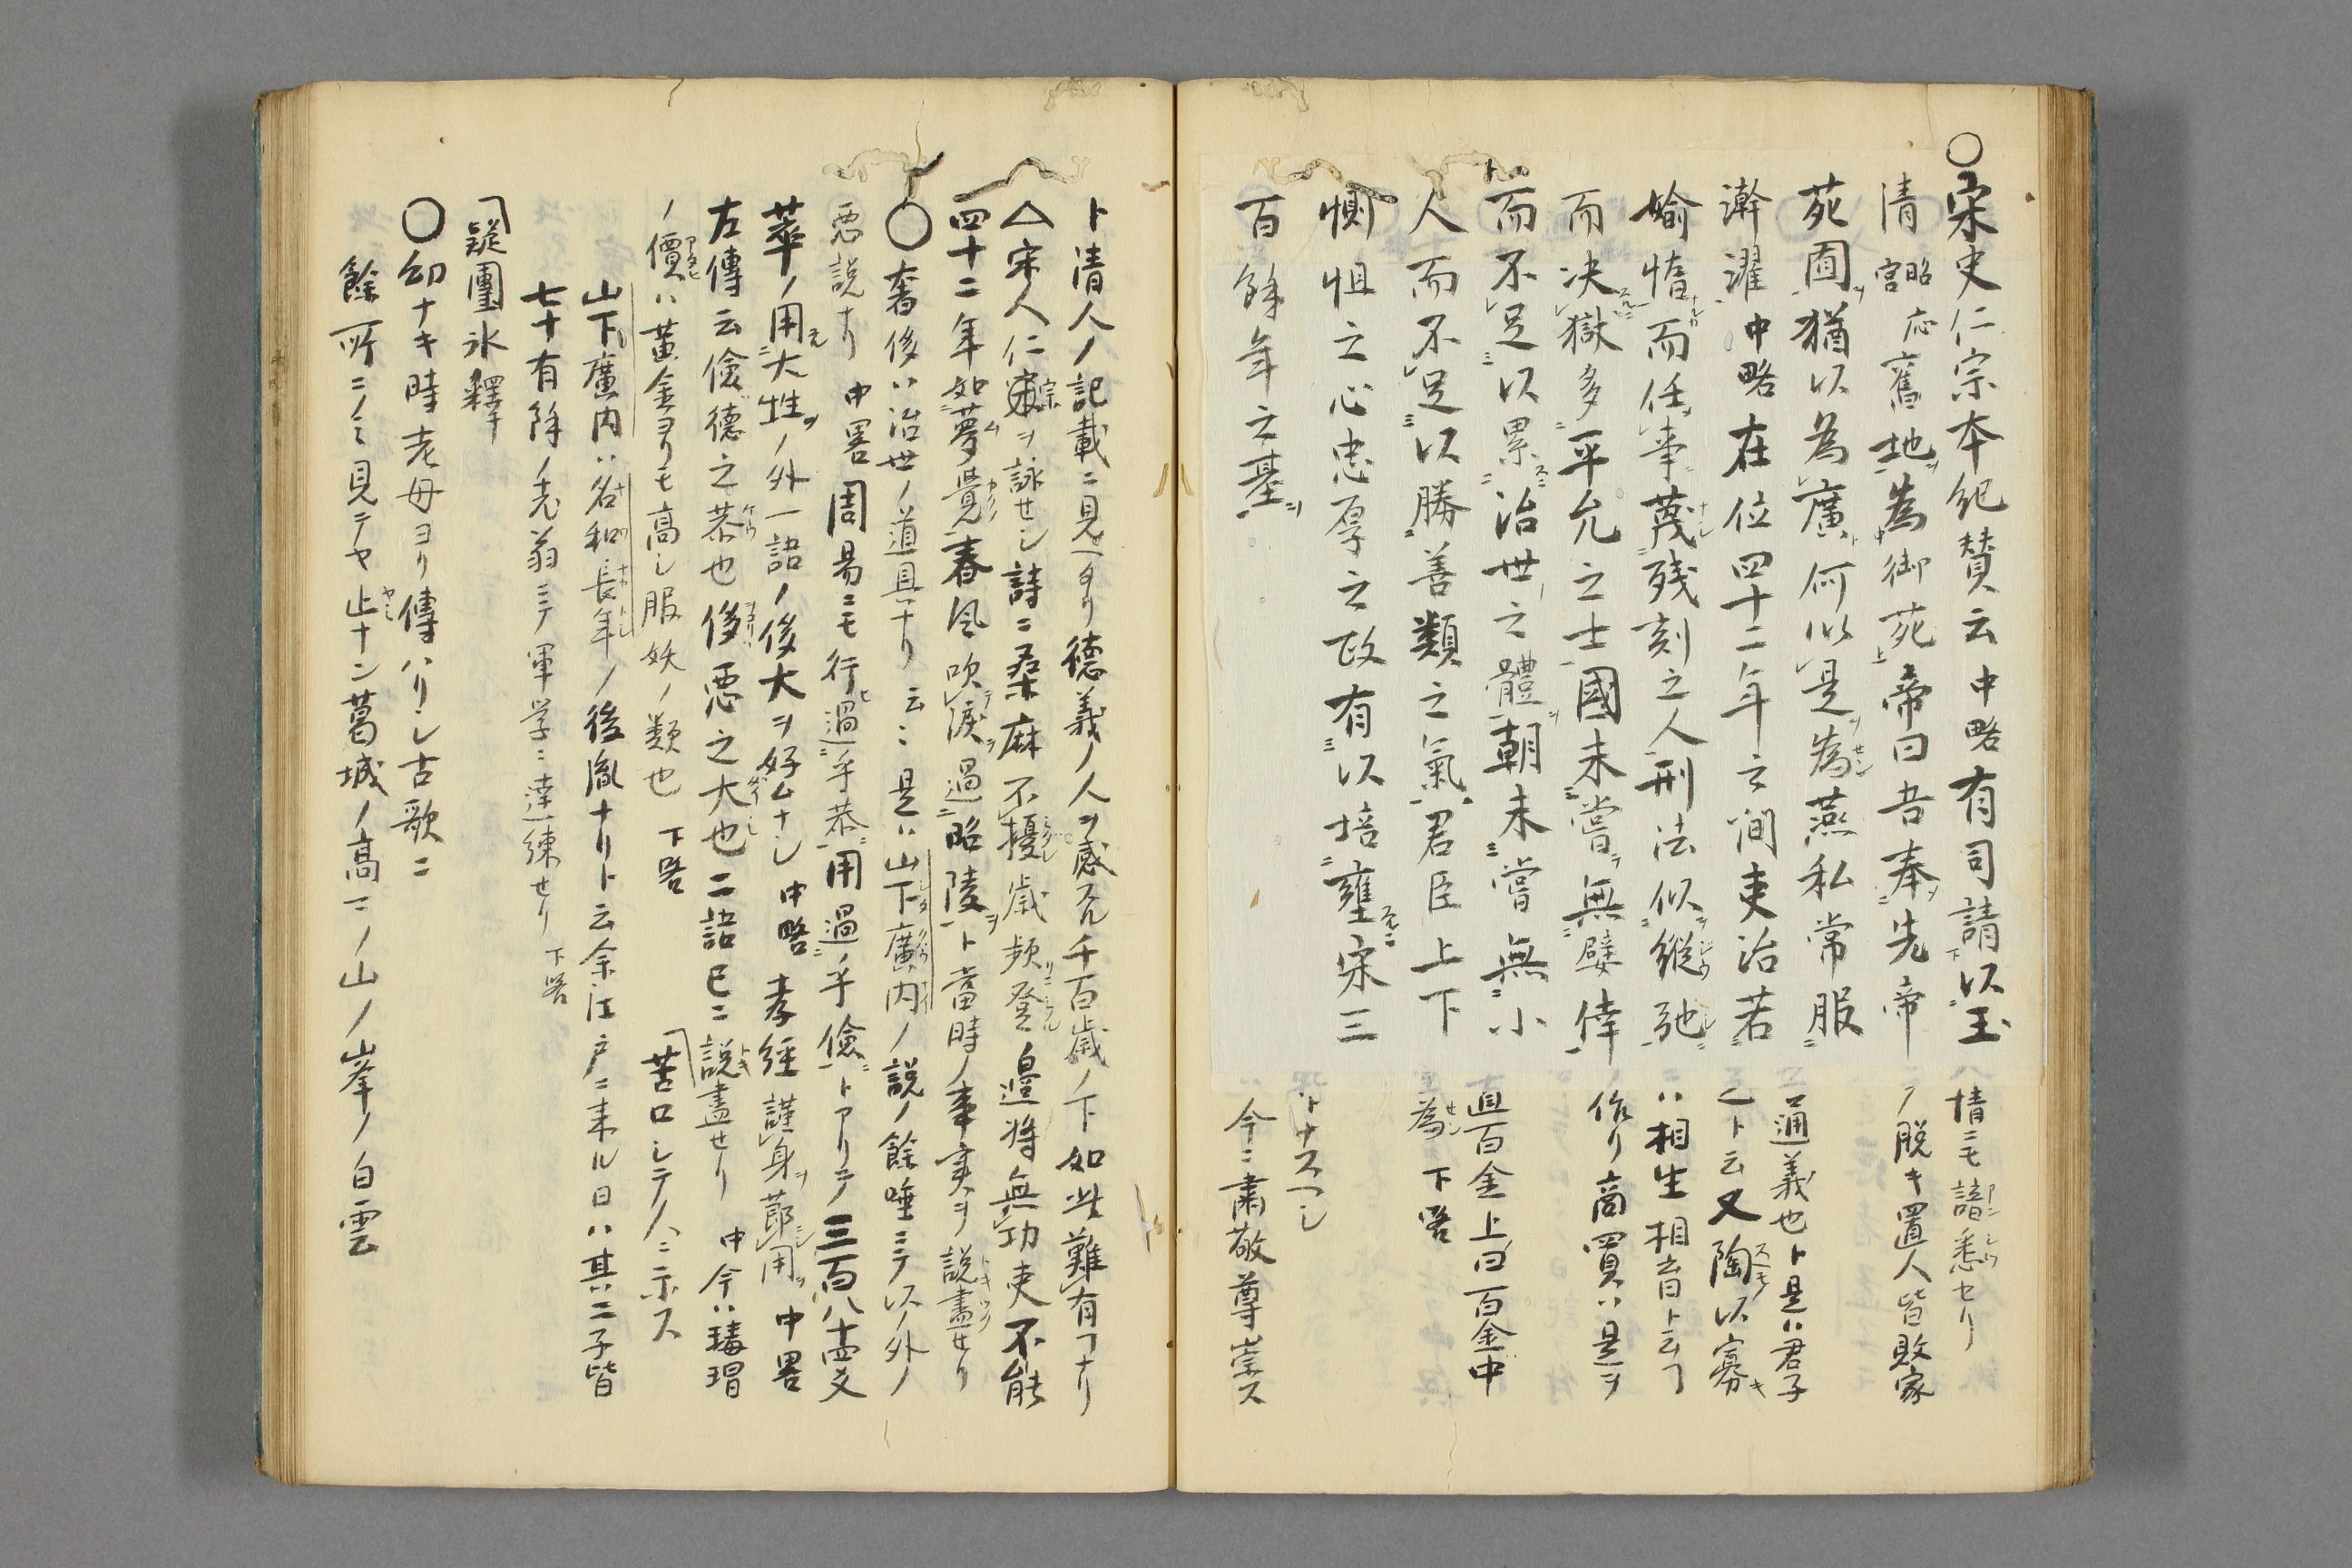 ○宋史仁宗本紀賛云中略有司請以玉
清昭応宮舊地為御苑帝曰吾奉先帝
苑囿猶以為廣何以是為燕私常服
澣濯中略在位四十二年之間吏治若
媮惰而任事蔑残刻之人刑法似縱弛
而决獄多平允之士國未嘗無嬖倖
而不足以累治世之體朝未嘗無小
人而不足以勝善類之氣君臣上下
惻怛之心忠厚之政有以培壅宋三
百餘年之基
情ニモ諳悉セリ
ノ脱キ置人皆敗家
通義也ト是ハ君子
ト云又陶以寡
ニハ相生相合ト云フ
作リ商買ハ是ヲ
直百金上曰百金中
為下畧
ナスヘシ
今ニ肅敬尊崇ス
ト清人ノ記載ニ見ヘタリ德義ノ人ヲ感スル千百歳ノ下如此難有フナリ
△宋人仁宗ヲ詠セシ詩ニ桑麻不擾歳頻登邉将無功吏不能
四十二年如夢覺春風吹淚過昭陵ト當時ノ事実ヲ説盡セリ
○奢侈ハ治世ノ道具ナリ云々是ハ山下廣内ノ説ノ餘唾ニテ以ノ外ノ
惡説ナリ中畧周易ニモ行過乎恭用過乎儉トアリテ三百八十四爻
萃ノ用大牲ノ外一語ノ後大ヲ好ムナシ中略孝経謹身節用中畧
左傳云儉德之恭也侈惡之大也二語已ニ説盡セリ中今ハ瑇瑁
ノ價ハ黄金ヨリモ高シ服妖ノ類也下畧「苦口シテ人ニ示ス
山下廣内ハ名和長年ノ後胤ナリト云余江戸ニ来ル日ハ其二子皆
七十有餘ノ老翁ニテ軍学ニ達練セリ下畧
「疑團氷釋
○幼ナキ時老母ヨリ傳ハリシ古歌ニ
餘所ニノミ見テヤ止ナン葛城ノ高マノ山ノ峯ノ白雲